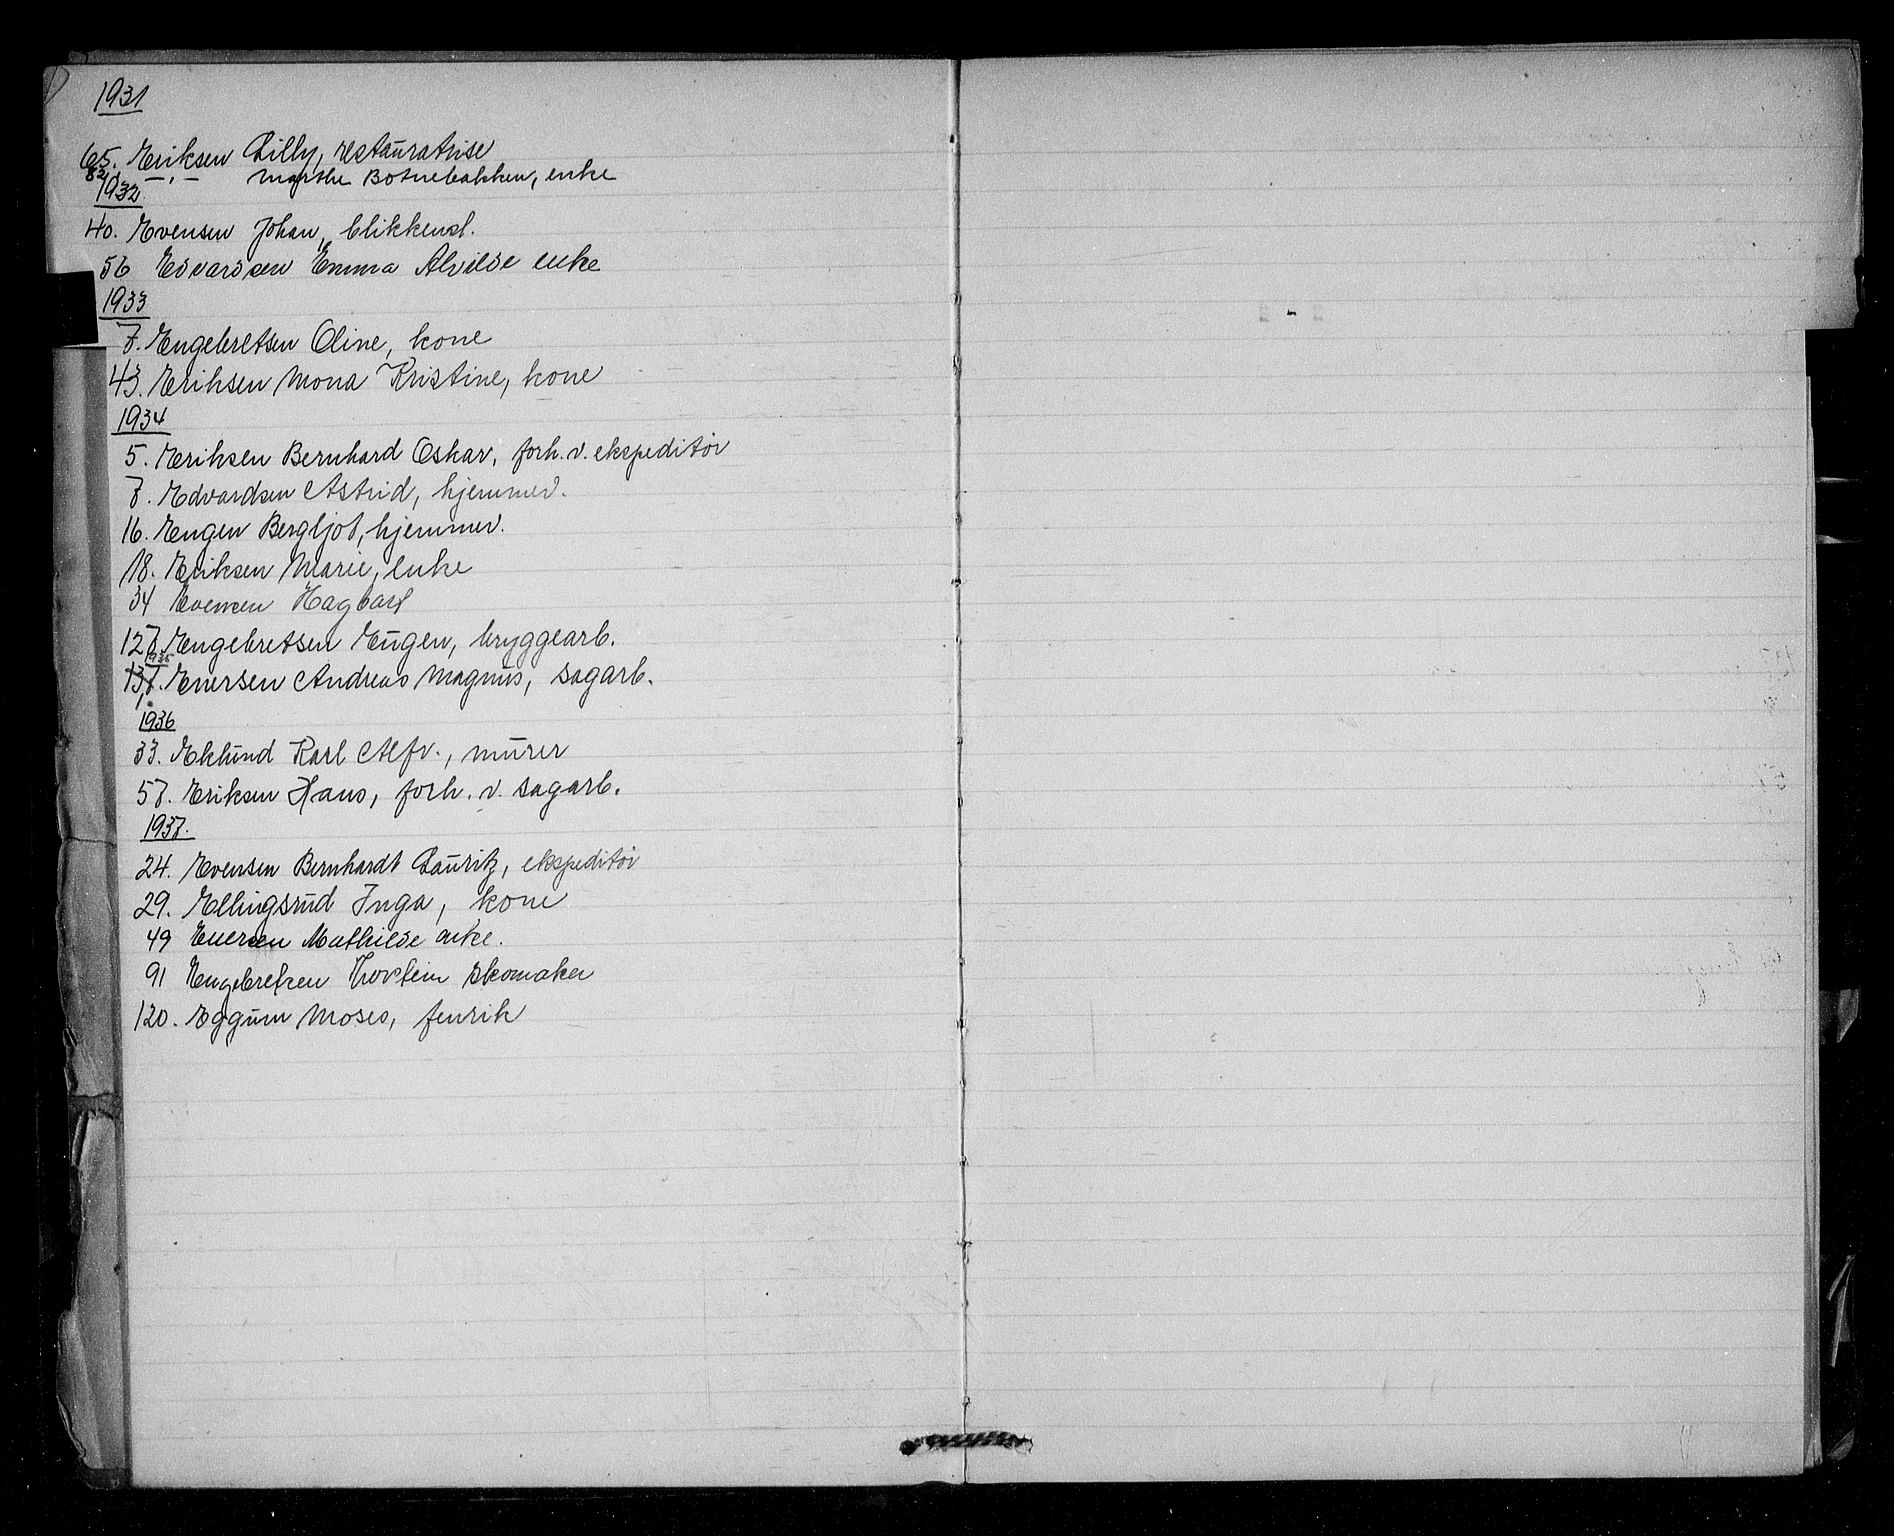 1931
65. Eriksen Lilly, restauratrise
82. — " — Marthe Botnebakken, enke
1932
40. Evensen Johan, blikkensl.
56 Edvardsen Emma Alvilde enke
1933
7. Engebretsen Oline, kone
43. Eriksen Mona Kristine, kone
1934
5. Eriksen Bernhard Oskar, forh. v. ekspeditør
7. Edvardsen Astrid, hjemmev.
16. Engen Bergljot, hjemmev.
18. Eriksen Marie, enke
34 Evensen Hagbart
127. Engebretsen Eugen, bryggearb.
1935
Enersen Andreas Magnus, sagarb.
1936
33. Eklund Karl Alfr., murer
57. Eriksen Hans, forh. v. sagarb.
1937.
24. Evensen Bernhardt Lauritz, ekspeditør
29. Ellingsrud Inga, kone
49 Enersen Mathilde enke.
91 Engebretsen Thorstein skomaker
120. Eggum Moses, fenrik